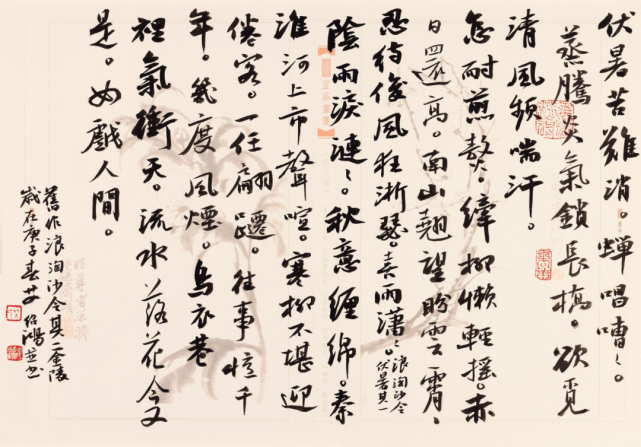 伏暑苦難消。蟬唱嘈〻。
蒸騰炎氣鎖長橋。欲覓
清風頻喘汗。
怎耐煎熬。柳懶輕摇。赤
日還高。南山翹望盼雲霄〻
忍待風狂淅瑟。喜雨瀟〻。
浪淘沙令
伏暑其一
陰雨淚漣〻。秋意纏綿。秦
淮河上市聲喧。寒柳不堪迎
倦客。一任翩躚。往事憶千
年。幾度風煙。烏衣巷
裡氣衝天。流水落花今又
是。如戲人間。
舊作浪淘沙令其二金陵
歲在庚子春艾紹鴻並書